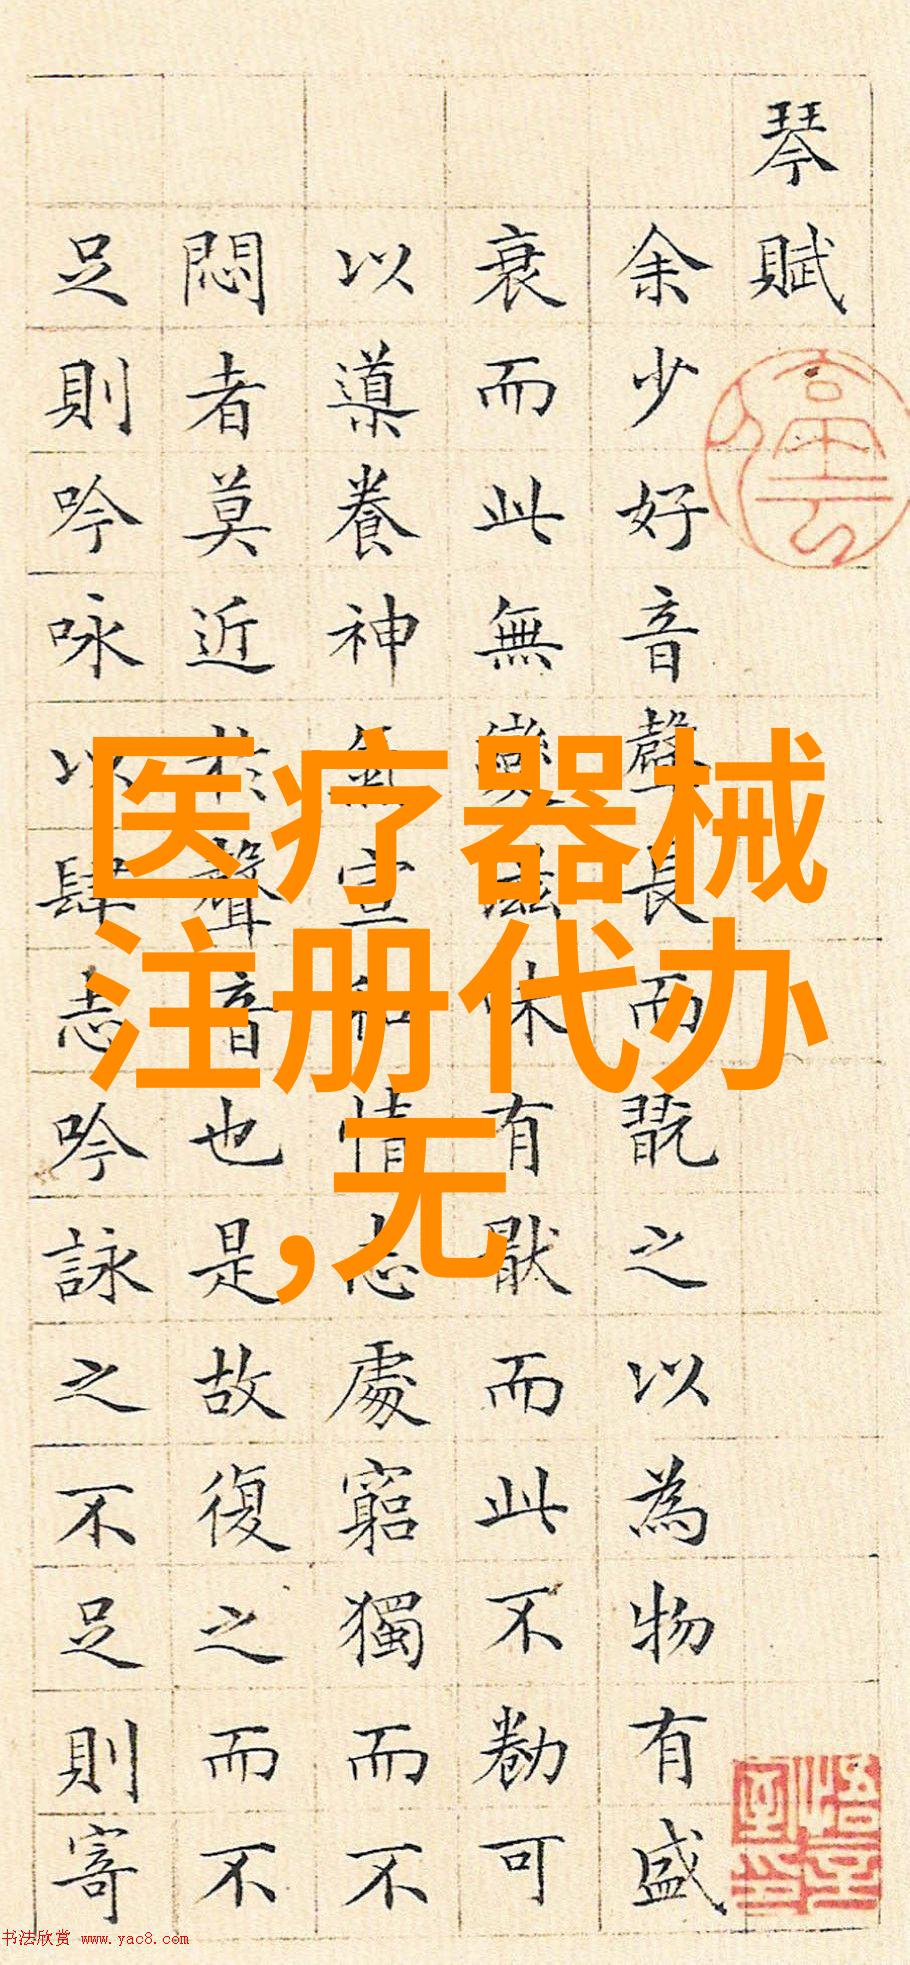 琴賦
余少好音聲長而翫之以為物有盛
衰而此無變滋味有厭而此不勌可
以導養神氣宣和情志處窮獨而不
悶者莫近於聲音也是故復之而不
足則吟咏以肆志吟詠之不足則寄
医疗器械
注册代办
,无
书法欣赏 www.yac8.com